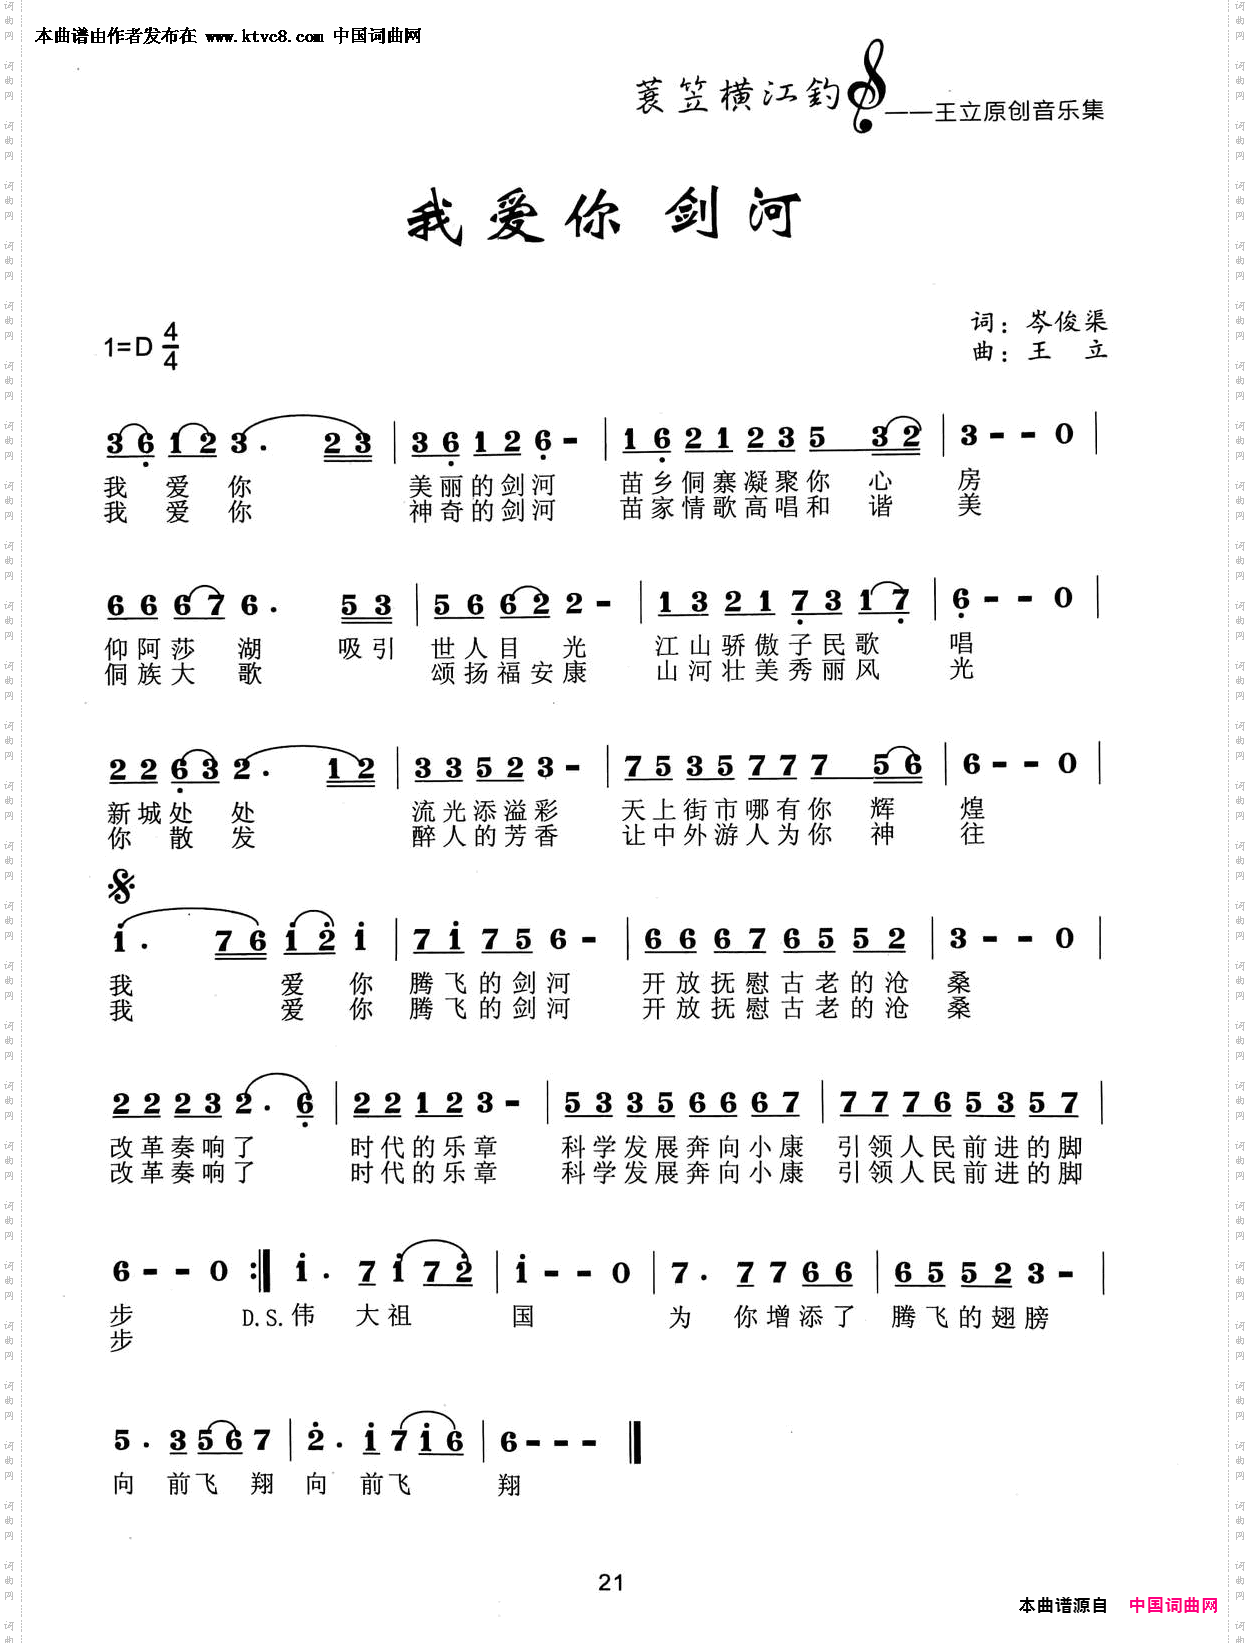 本曲谱由作者发布在 www.ktvc8.com 中国词曲网
蓑笠横江钓——王立原创音乐集
我爱你 剑河
词：岑俊渠
1=D 4/4
曲：王 立
3 6 1 2 3 . 2 3 | 3 6 1 2 6 - | 1 6 2 1 2 3 5 3 2 | 3 - - 0 |
我 爱 你 美丽的剑河 苗乡侗寨凝聚你 心 房
我 爱 你 神奇的剑河 苗家情歌高唱和 谐 美
6 6 6 7 6 . 5 3 | 5 6 6 2 2 - | 1 3 2 1 7 3 1 7 | 6 - - 0 |
仰阿莎 湖 吸引 世人目 光 江山骄傲子民歌 唱
侗族大 歌 颂扬福安康 山河壮美秀丽风 光
2 2 6 3 2 . 1 2 | 3 3 5 2 3 - | 7 5 3 5 7 7 7 5 6 | 6 - - 0 |
新城处 处 流光添溢彩 天上街市哪有你 辉 煌
你 散 发 醉人的芳香 让中外游人为你 神 往
1 . 7 6 1 2 1 | 7 1 7 5 6 - | 6 6 6 7 6 5 5 2 | 3 - - 0 |
我 爱 你 腾飞的剑河 开放抚慰古老的沧 桑
我 爱 你 腾飞的剑河 开放抚慰古老的沧 桑
2 2 2 3 2 . 6 | 2 2 1 2 3 - | 5 3 3 5 6 6 6 7 | 7 7 7 6 5 3 5 7 |
改革奏响了 时代的乐章 科学发展奔向小康 引领人民前进的脚
改革奏响了 时代的乐章 科学发展奔向小康 引领人民前进的脚
6 - - 0 :| 1 . 7 1 7 2 | 1 - - 0 | 7 . 7 7 6 6 | 6 5 5 2 3 - |
步 D.S.伟 大祖 国 为 你增添了 腾飞的翅膀
步
5 . 3 5 6 7 | 2 . 1 7 1 6 | 6 - - - ||
向 前飞 翔 向 前飞 翔
21
本曲谱源自 中国词曲网
词曲网